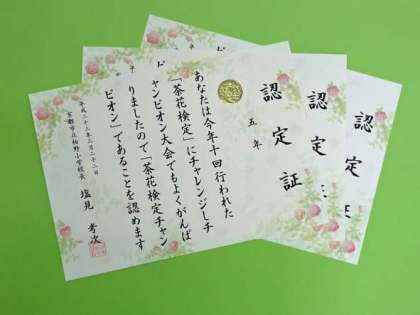 認定証
五年
あなたは今年十回行われた
「茶花検定」にチャレンジしチ
ャンピオン大会でもよくがんば
りましたので「茶花検定チャン
ピオン」であることを認めます
平成二十三年三月二十二日
京都市立柏野小学校長 塩見 孝次
認定
認定